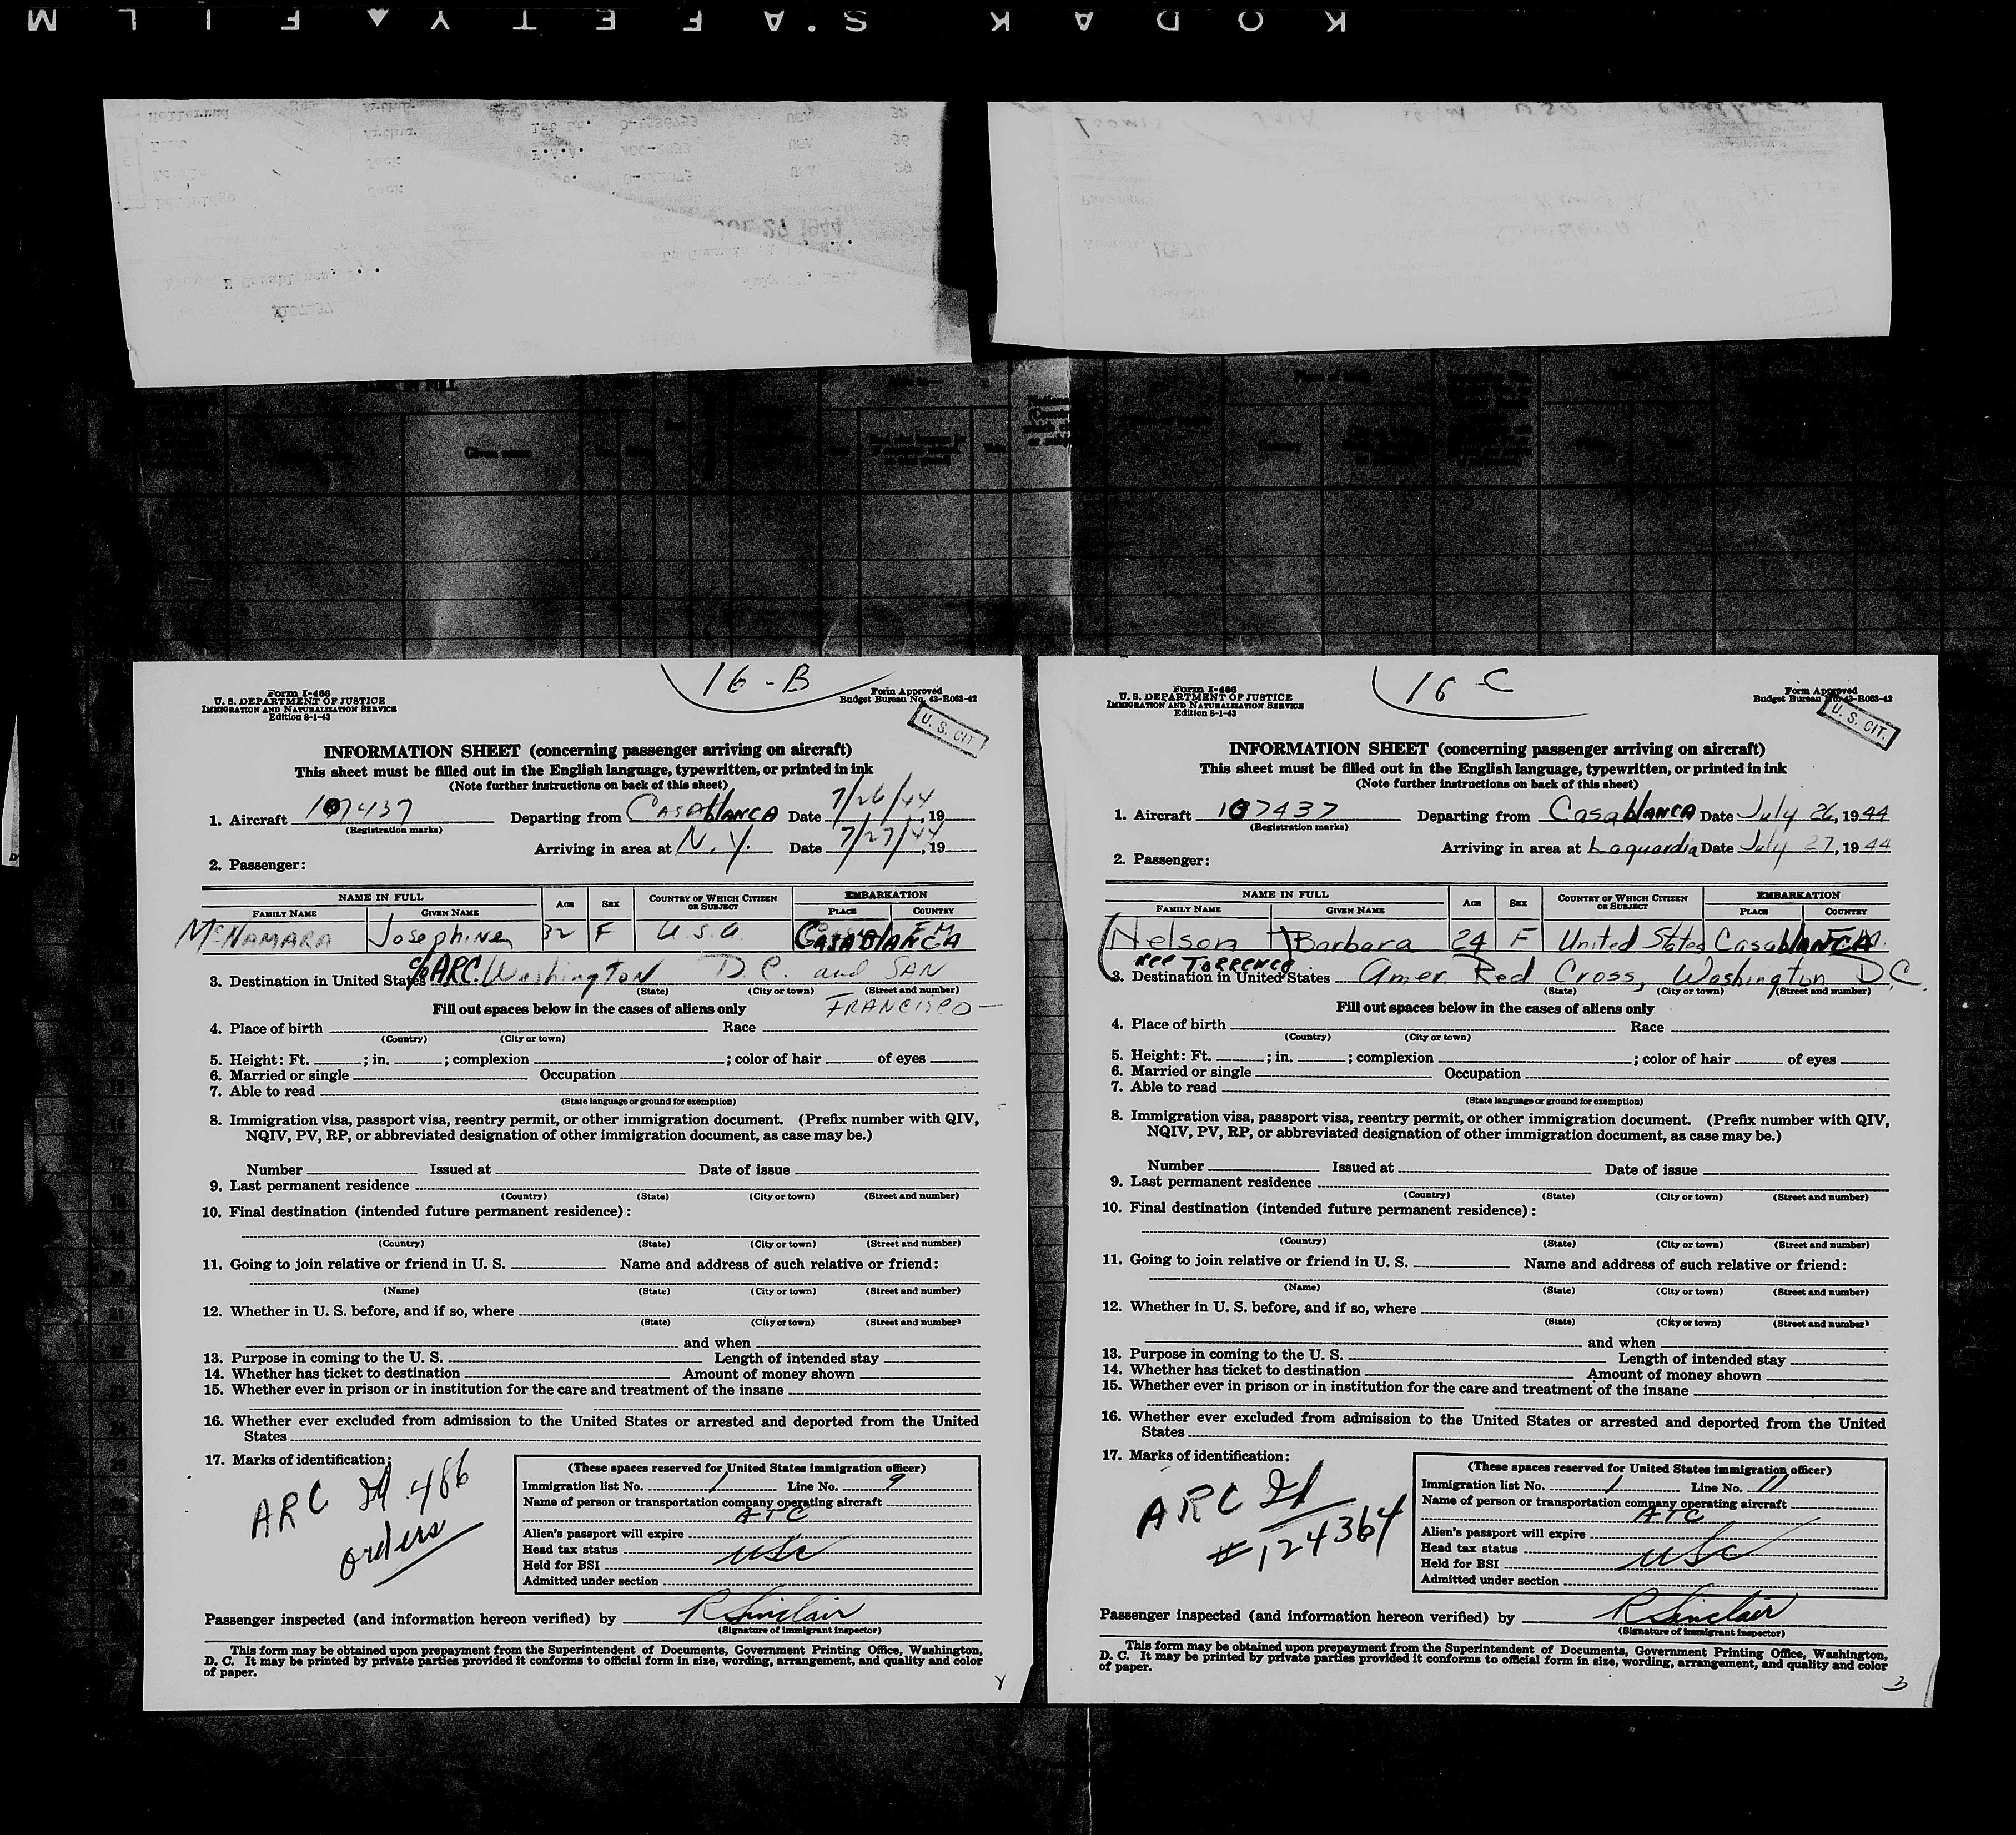 KODAK SAFETY FILM
16-B
Form I-466
U. S. DEPARTMENT OF JUSTICE
IMMIGRATION AND NATURALIZATION SERVICE
Edition 8-1-43
Form Approved
Budget Bureau No. 43-R063-42
U. S. CIT.
INFORMATION SHEET (concerning passenger arriving on aircraft)
This sheet must be filled out in the English language, typewritten, or printed in ink
(Note further instructions on back of this sheet)
1. Aircraft 107437 Departing from CASABLANCA Date 7/26/44, 19
(Registration marks)
Arriving in area at N.Y. Date 7/27/44, 19
2. Passenger:
NAME IN FULL AGE SEX COUNTRY OF WHICH CITIZEN OR SUBJECT EMBARKATION
FAMILY NAME GIVEN NAME PLACE COUNTRY
McNAMARA Josephine 32 F U.S.A. CASABLANCA F.M.
3. Destination in United States c/o ARC Washington D.C. and SAN
(State) (City or town) (Street and number)
FRANCISCO -
Fill out spaces below in the cases of aliens only
4. Place of birth Race
(Country) (City or town)
5. Height: Ft. ; in. ; complexion ; color of hair of eyes
6. Married or single Occupation
7. Able to read
(State language or ground for exemption)
8. Immigration visa, passport visa, reentry permit, or other immigration document. (Prefix number with QIV,
NQIV, PV, RP, or abbreviated designation of other immigration document, as case may be.)
Number Issued at Date of issue
9. Last permanent residence
(Country) (State) (City or town) (Street and number)
10. Final destination (intended future permanent residence):
(Country) (State) (City or town) (Street and number)
11. Going to join relative or friend in U. S. Name and address of such relative or friend:
(Name) (State) (City or town) (Street and number)
12. Whether in U. S. before, and if so, where
(State) (City or town) (Street and number)
and when
13. Purpose in coming to the U. S. Length of intended stay
14. Whether has ticket to destination Amount of money shown
15. Whether ever in prison or in institution for the care and treatment of the insane
16. Whether ever excluded from admission to the United States or arrested and deported from the United
States
17. Marks of identification:
ARC Id 486
orders
(These spaces reserved for United States immigration officer)
Immigration list No. 1 Line No. 9
Name of person or transportation company operating aircraft
ATC
Alien's passport will expire
Head tax status USC
Held for BSI
Admitted under section
Passenger inspected (and information hereon verified) by R Sinclair
(Signature of immigrant inspector)
This form may be obtained upon prepayment from the Superintendent of Documents, Government Printing Office, Washington,
D. C. It may be printed by private parties provided it conforms to official form in size, wording, arrangement, and quality and color
of paper.
16-C
Form I-466
U. S. DEPARTMENT OF JUSTICE
IMMIGRATION AND NATURALIZATION SERVICE
Edition 8-1-43
Form Approved
Budget Bureau No. 43-R063-42
U. S. CIT.
INFORMATION SHEET (concerning passenger arriving on aircraft)
This sheet must be filled out in the English language, typewritten, or printed in ink
(Note further instructions on back of this sheet)
1. Aircraft 107437 Departing from CasaBLANCA Date July 26, 1944
(Registration marks)
Arriving in area at Laguardia Date July 27, 1944
2. Passenger:
NAME IN FULL AGE SEX COUNTRY OF WHICH CITIZEN OR SUBJECT EMBARKATION
FAMILY NAME GIVEN NAME PLACE COUNTRY
Nelson Barbara 24 F United States CasaBLANCA F.M.
nee TORRENCE
3. Destination in United States Amer Red Cross, Washington D.C.
(State) (City or town) (Street and number)
Fill out spaces below in the cases of aliens only
4. Place of birth Race
(Country) (City or town)
5. Height: Ft. ; in. ; complexion ; color of hair of eyes
6. Married or single Occupation
7. Able to read
(State language or ground for exemption)
8. Immigration visa, passport visa, reentry permit, or other immigration document. (Prefix number with QIV,
NQIV, PV, RP, or abbreviated designation of other immigration document, as case may be.)
Number Issued at Date of issue
9. Last permanent residence
(Country) (State) (City or town) (Street and number)
10. Final destination (intended future permanent residence):
(Country) (State) (City or town) (Street and number)
11. Going to join relative or friend in U. S. Name and address of such relative or friend:
(Name) (State) (City or town) (Street and number)
12. Whether in U. S. before, and if so, where
(State) (City or town) (Street and number)
and when
13. Purpose in coming to the U. S. Length of intended stay
14. Whether has ticket to destination Amount of money shown
15. Whether ever in prison or in institution for the care and treatment of the insane
16. Whether ever excluded from admission to the United States or arrested and deported from the United
States
17. Marks of identification:
ARC Id
#124364
(These spaces reserved for United States immigration officer)
Immigration list No. 1 Line No. 11
Name of person or transportation company operating aircraft
ATC
Alien's passport will expire
Head tax status USC
Held for BSI
Admitted under section
Passenger inspected (and information hereon verified) by R Sinclair
(Signature of immigrant inspector)
This form may be obtained upon prepayment from the Superintendent of Documents, Government Printing Office, Washington,
D. C. It may be printed by private parties provided it conforms to official form in size, wording, arrangement, and quality and color
of paper.
3